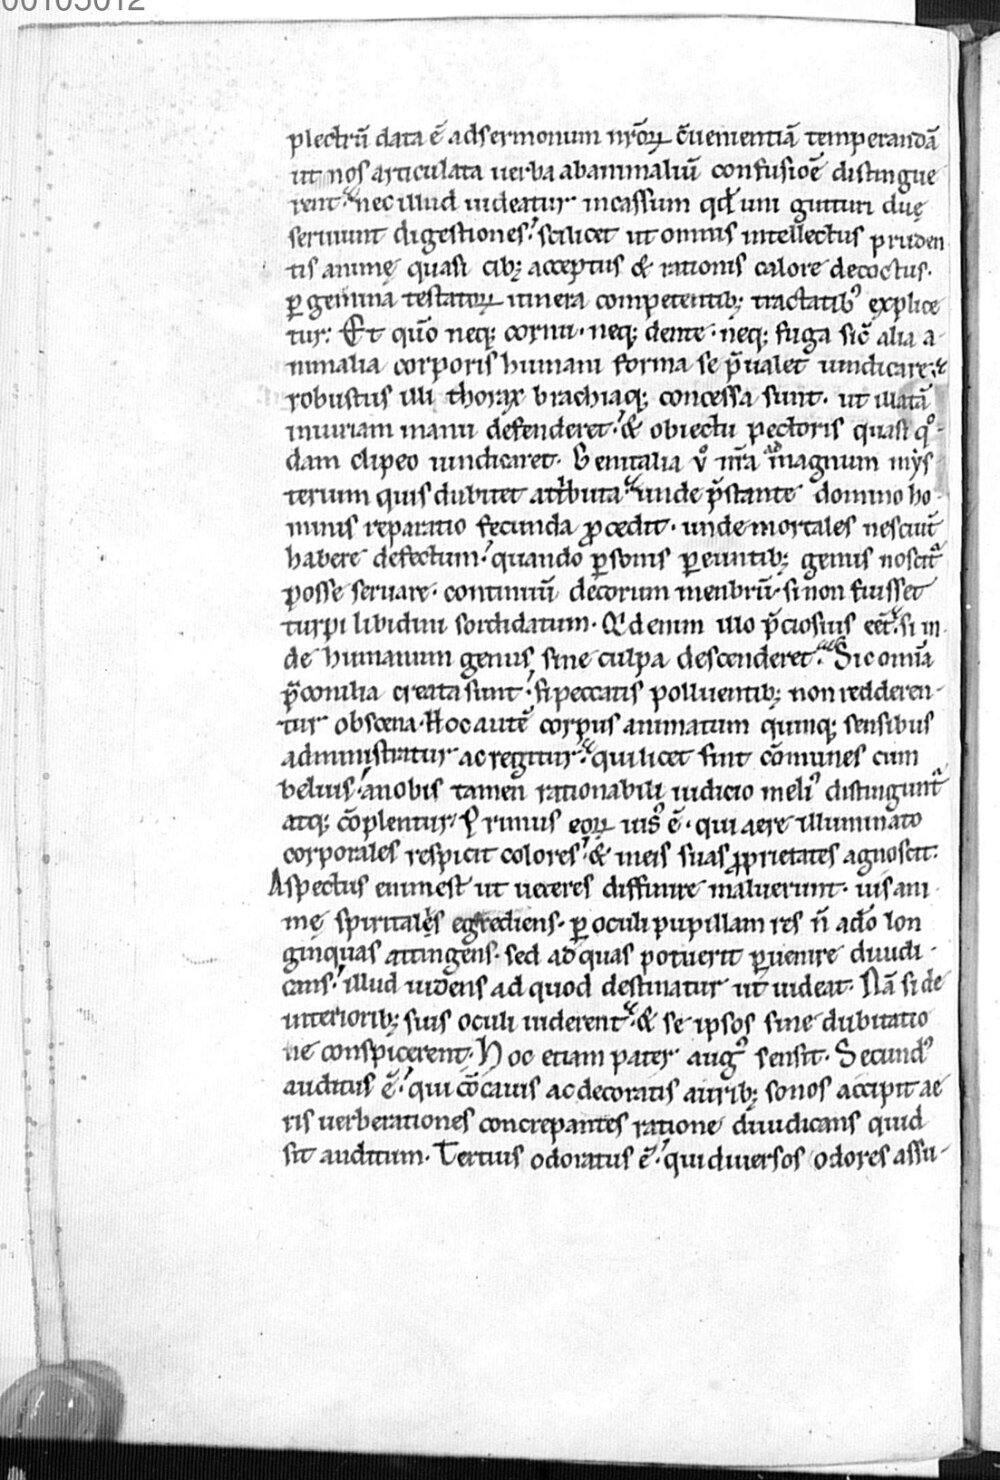 00105012
plectrū data ē adsermonum nr̄oꝝ c̄uenientiā temperandā
ut nos articulata uerba abanimaliū confusiōe distingue
rent. nec illud uideatur incassum qđ uni gutturi duę
seruiunt digestiones. scilicet ut omnis intellectus pruden
tis animę quasi cibꝫ acceptus & rationis calore decoctus.
ꝑ gemina testatoꝝ itinera competentibꝫ tractatibꝰ explice
tur. Et qūo neqꝫ cornu. neqꝫ dente. neqꝫ fuga sic̄ alia a-
nimalia corporis humani forma se p̄ualet uindicare.
robustus illi thorax brachiaqꝫ concessa sunt. ut illatā
iniuriam manu defenderet. & obiectu pectoris quasi qͦ-
dam clipeo uindicaret. Genitalia ůͦ nr̄a magnum mys-
terium quis dubitet attributa. unde p̄stante domino ho-
minis reparatio fecunda ꝓcedit. unde mortales nesciūt
habere defectum. quando ꝑsonis ꝑeuntibꝫ genus noscit᷑
posse seruare. continuū decorum menbrū. si non fuisset
turpi libidini sordidatum. Qđ enim illo p̄ciosius eēt. si in-
de humanum genus sine culpa descenderet. Sic omīa
p̄conilia creata sunt. si peccatis polluentibꝫ non redderen-
tur obscena. Hoc autē corpus animatum quinqꝫ sensibus
administratur ac regitur. qui licet sint cōmunes cum
beluis. anobis tamen rationabili iudicio meliꝰ distingunt᷑
atqꝫ cōplentur. Primus eoꝝ uisꝰ ē. qui aere illuminato
corporales respicit colores. & meis suas ꝓprietates agnoscit.
Aspectus enim est ut ueteres diffinire maluerunt. uis ani-
mę spiritalęs egrediens. ꝑ oculi pupillam res n̄ adeo lon
ginquas attingens. sed ad quas potuerit ꝑuenire diiudi-
cans. illud uidens ad quod destinatur ut uideat. Nā si de
interioribꝫ suis oculi uiderent. & se ipsos sine dubitatio
ne conspicerent. Hoc etiam pater augꝰ sensit. Secundꝰ
auditus ē. qui cōcauis ac decoratis auribꝫ sonos accipit ae
ris uerberationes concrepantes ratione diiudicans quid
sit auditum. Tertius odoratus ē. qui diuersos odores assu-